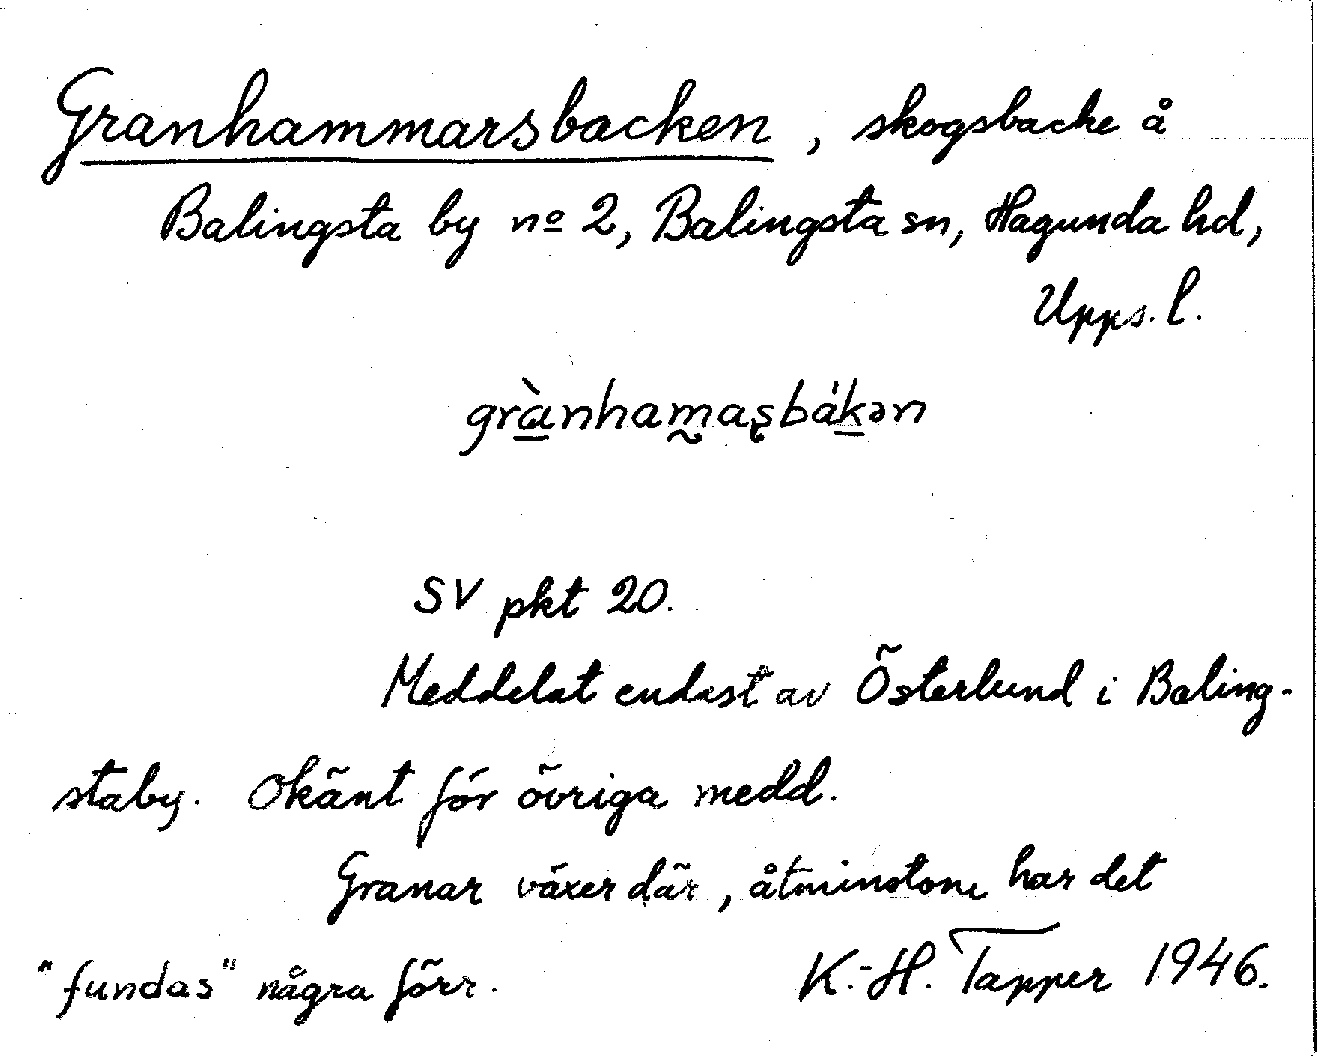 Granhammarsbacken, skogsbacke å
Balingsta by nº 2, Balingsta sn, Hagunda hd,
Upps. l.
grànhamasbákən
SV pkt 20.
Meddelat endast av Österlund i Baling-
staby. Okänt för övriga medd.
Granar växer där, åtminstone har det
"fundas" några förr.
K.-H. Tapper 1946.